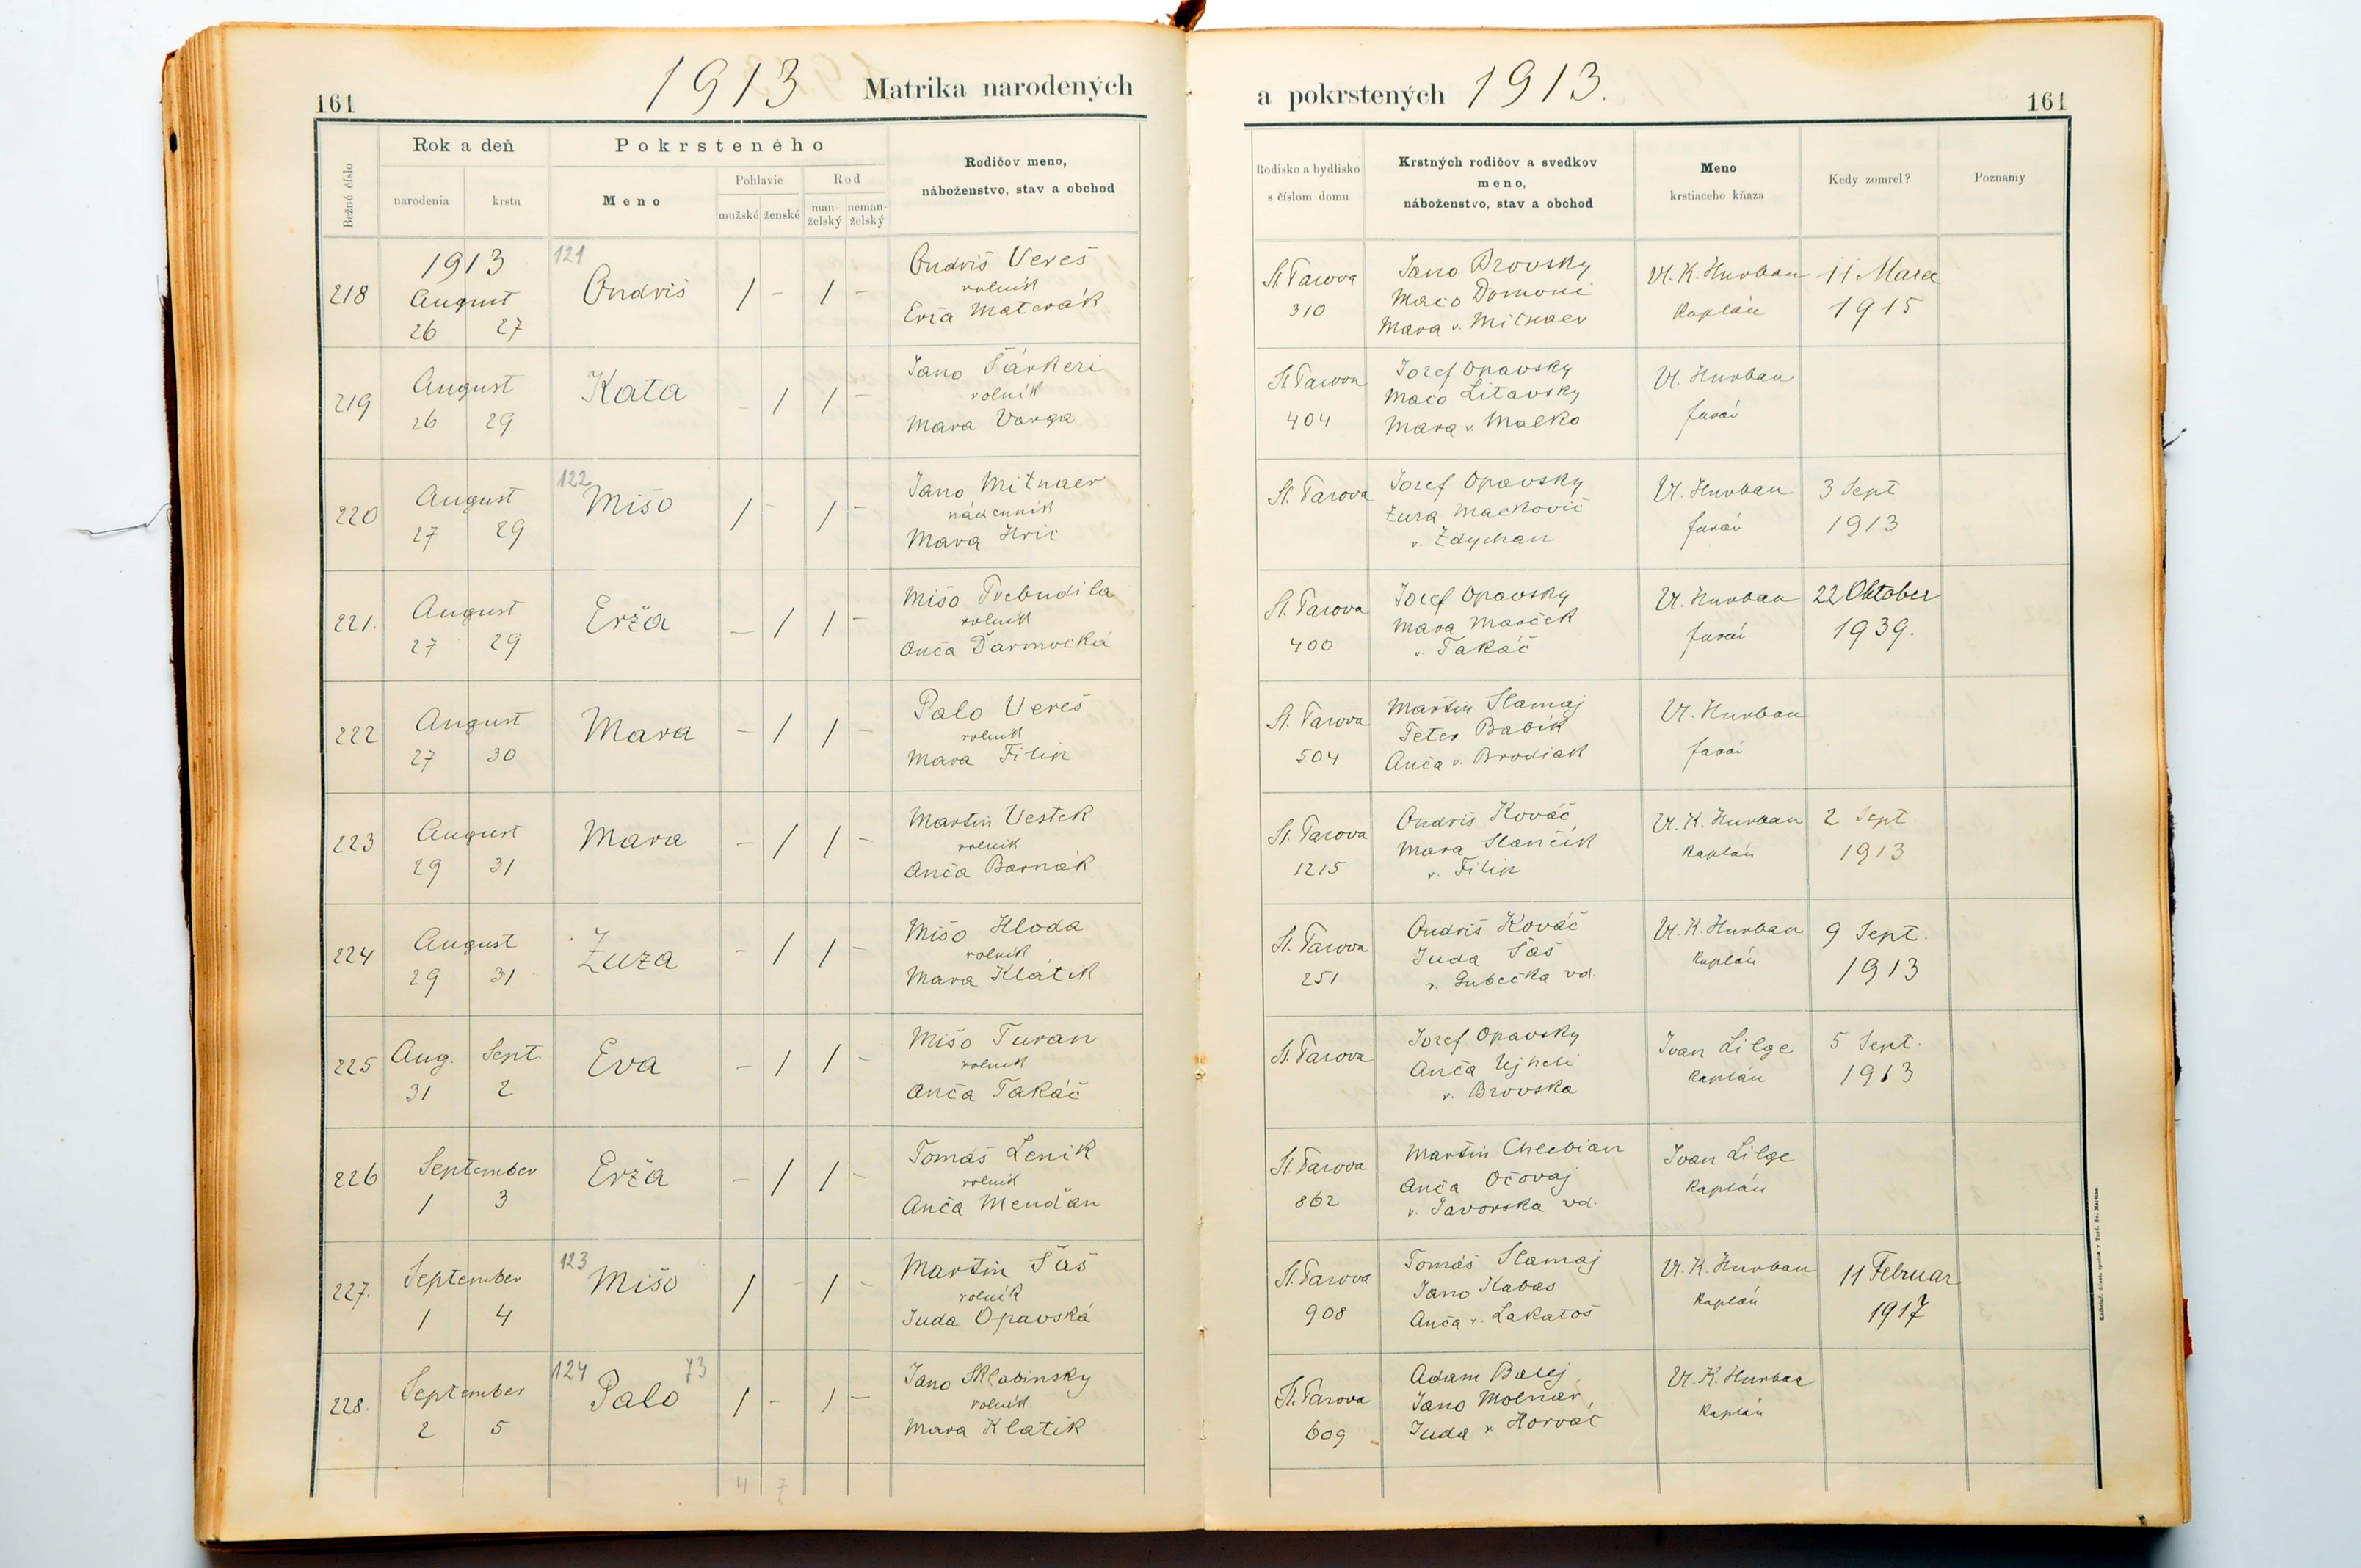 161
1913 Matrika narodených
a pokrstených 1913.
161
Bežné číslo
Rok a deň
narodenia
krstu
Pokrsteného
Meno
Pohlavie
mužské
ženské
Rod
man-
želský
neman-
želský
Rodičov meno,
náboženstvo, stav a obchod
Rodisko a bydlisko
s číslom domu
Krstných rodičov a svedkov
meno,
náboženstvo, stav a obchod
Meno
krstiaceho kňaza
Kedy zomrel?
Poznamy
218
1913
August
26 27
121
Ondriš
/ - / -
Ondriš Vereš
rolník
Erža Materák
St. Pazova
310
Jano Brovsky
Maco Domoni
Mara v. Mitnaer
Vl. K. Hurban
Kaplán
11 Marca
1915
219
August
26 29
Kata
- / / -
Jano Šárkeri
rolník
Mara Varga
St. Pazova
404
Jozef Opavsky
Maco Litavsky
Mara v. Malko
Vl. Hurban
farár
220
August
27 29
122
Mišo
/ - / -
Jano Mitnaer
nádenník
Mara Hric
St. Pazova
Jozef Opavsky
Zuza Mackovič
v. Zdychan
Vl. Hurban
farár
3 Sept
1913
221.
August
27 29
Erža
- / / -
Mišo Trebudila
rolník
Anča Ďarmocká
St. Pazova
400
Jozef Opavsky
Mara Marček
v. Takáč
Vl. Hurban
farár
22 Oktober
1939.
222
August
27 30
Mara
- / / -
Palo Vereš
rolník
Mara Filip
St. Pazova
504
Martin Slamaj
Peter Babík
Anča v. Brodiak
Vl. Hurban
farár
223
August
29 31
Mara
- / / -
Martin Vestek
rolník
Anča Barnák
St. Pazova
1215
Ondriš Kováč
Mara Slančík
v. Filip
Vl. K. Hurban
Kaplán
2 Sept
1913
224
August
29 31
Zuza
- / / -
Mišo Hloda
rolník
Mara Klátik
St. Pazova
251
Ondriš Kováč
Juda Šáš
v. Gubečka vd.
Vl. K. Hurban
Kaplán
9 Sept.
1913
225
Aug. Sept.
31 2
Eva
- / / -
Mišo Turan
rolník
Anča Takáč
St. Pazova
Jozef Opavsky
Anča Ujheli
v. Brovska
Ivan Lilge
Kaplán
5 Sept.
1913
226
September
1 3
Erža
- / / -
Tomáš Lenik
rolník
Anča Menďan
St. Pazova
862
Martin Chlebian
Anča Očovaj
v. Javorska vd.
Ivan Lilge
Kaplán
227.
September
1 4
123
Mišo
/ - / -
Martin Šáš
rolník
Juda Opavská
St. Pazova
908
Tomáš Slamaj
Jano Habas
Anča v. Lakatoš
Vl. K. Hurban
Kaplán
11 Februar
1917
228.
September
2 5
124
73
Palo
/ - / -
Jano Sklabinsky
rolník
Mara Klatik
St. Pazova
609
Adam Balej
Jano Molnar
Juda v Horvát
Vl. K. Hurban
Kaplán
4 7